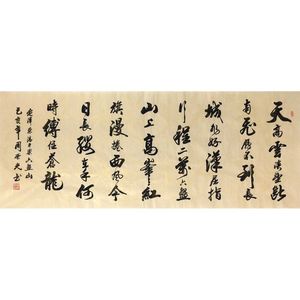 天高雲淡望断
南飛雁不到長
城非好漢屈指
行程二萬六盤
山上高峯紅
旗漫捲西風今
日長纓在手何
時縛住蒼龍
毛澤東清平樂六盤山
己亥年周光書